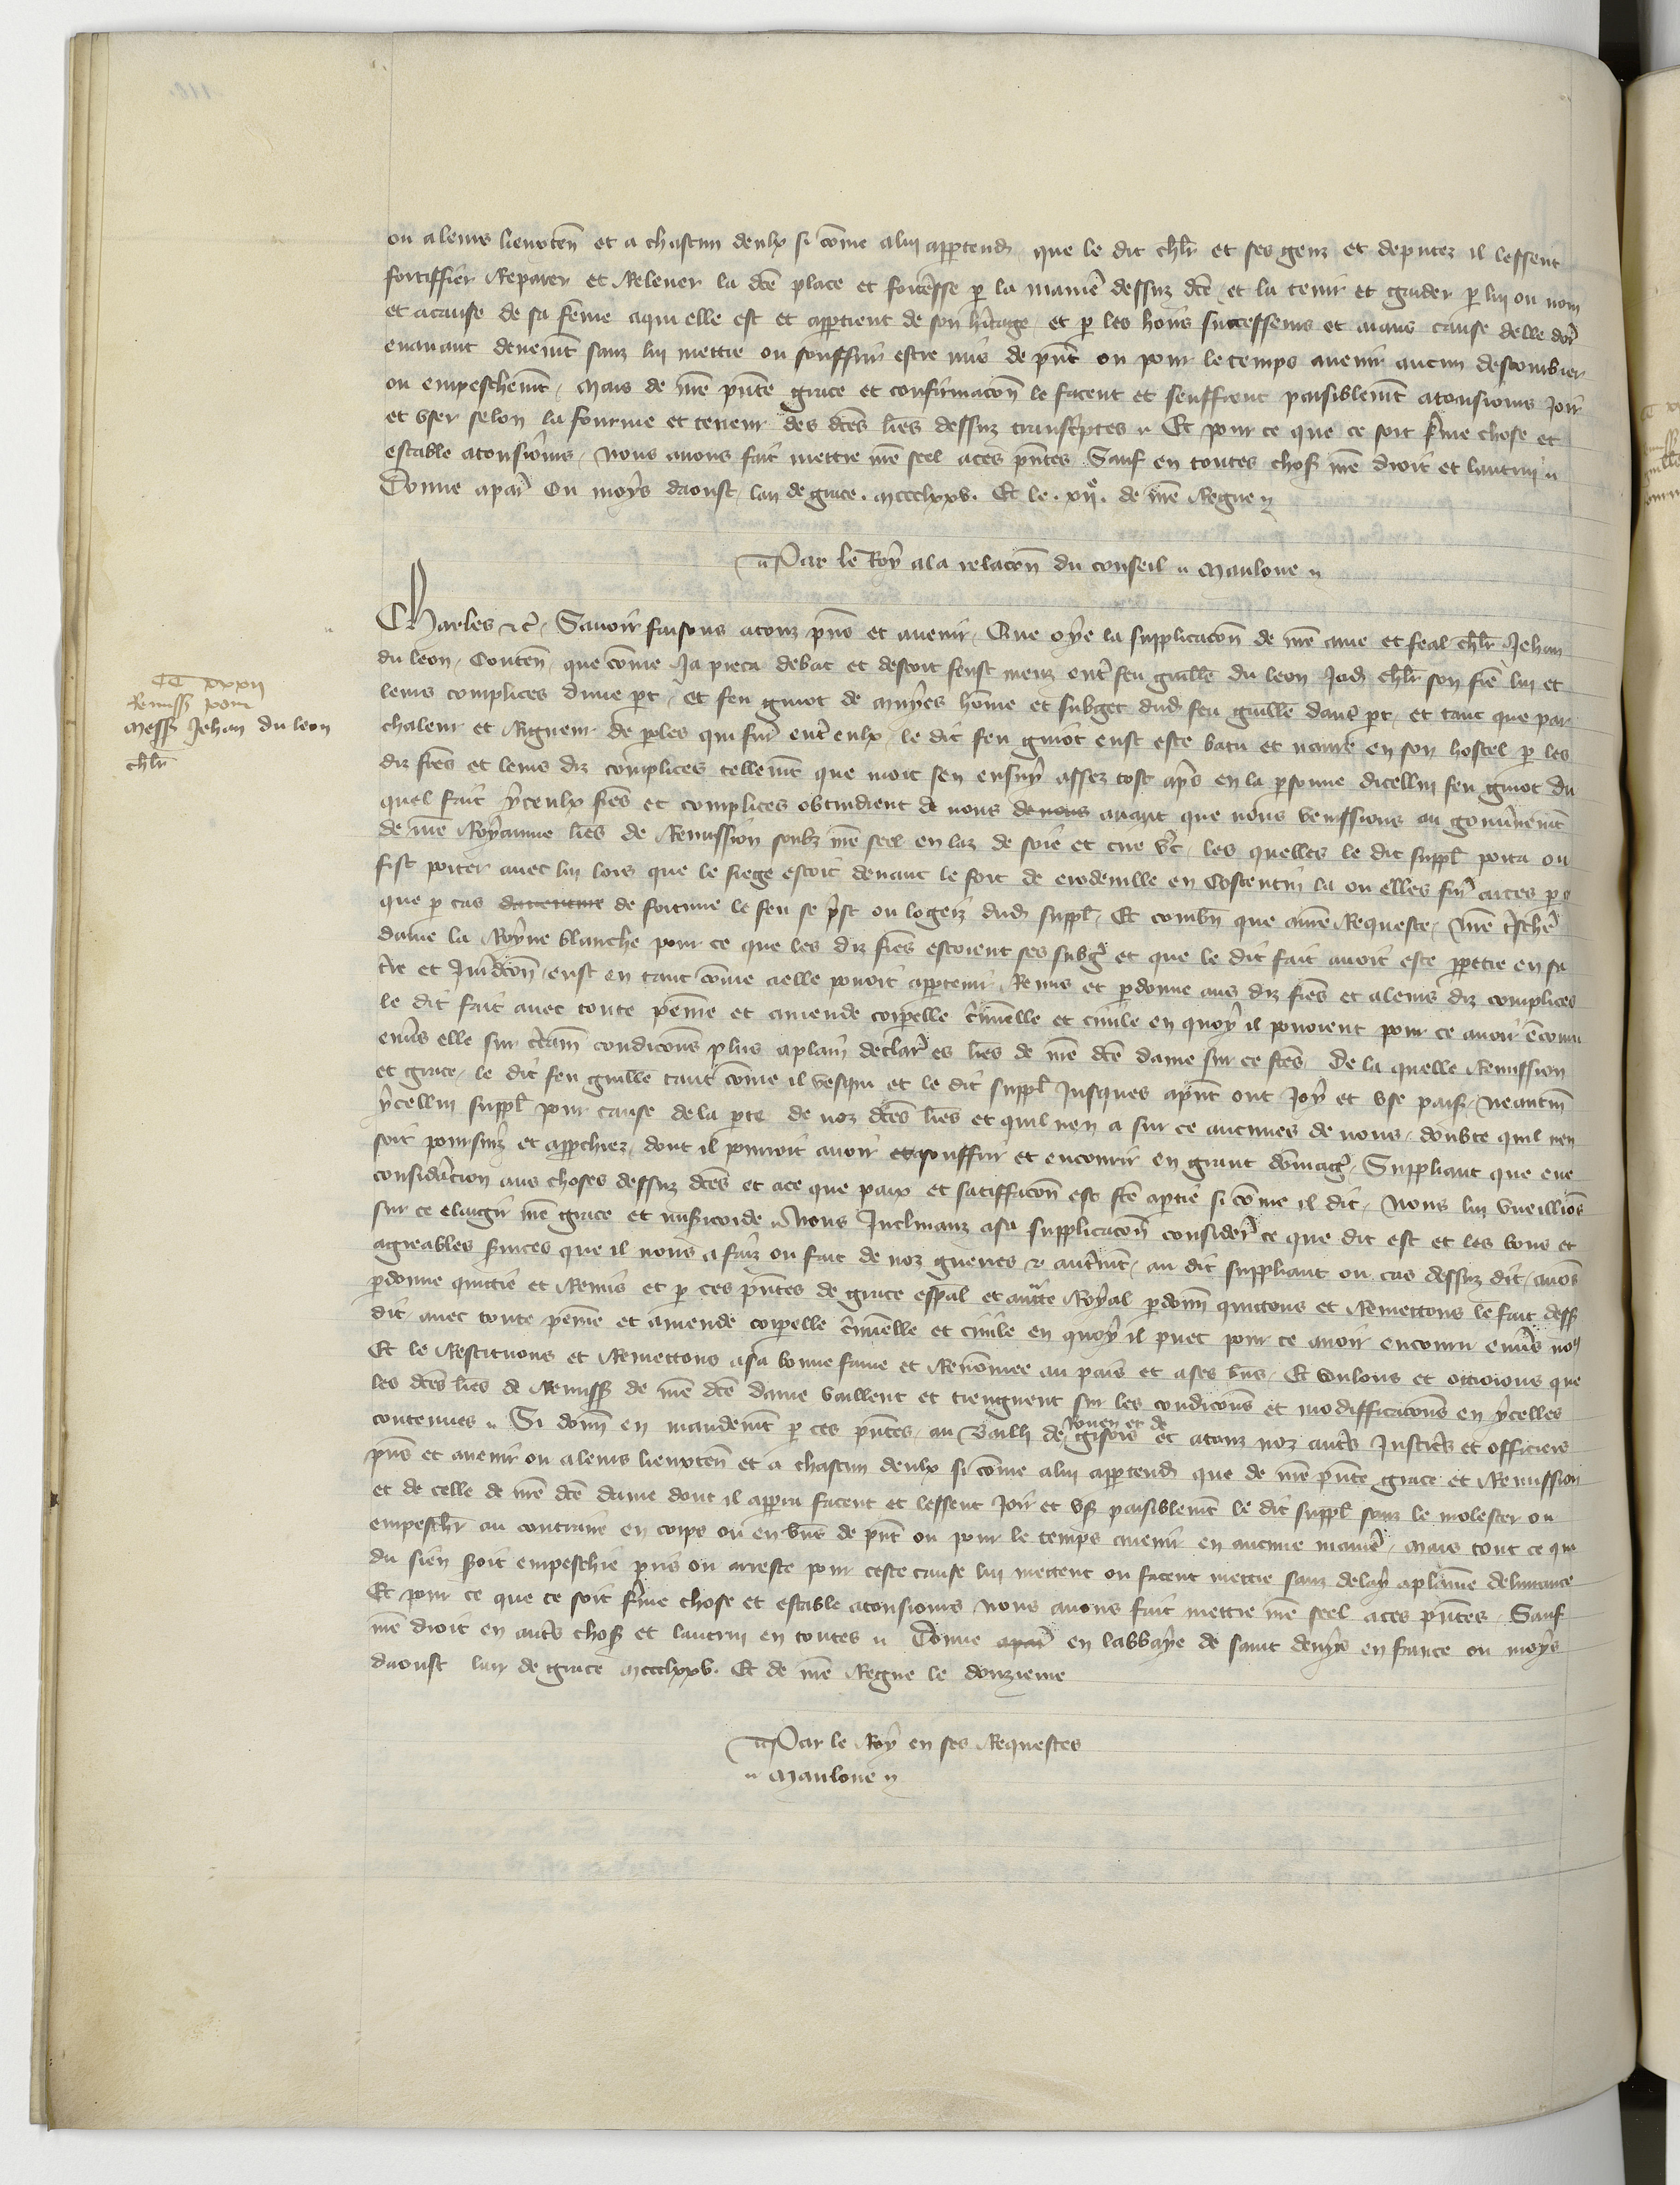 ou a leurs lieuxten̄ et a chascun deulx si cōme a lui appartend̄ que le dit chl̄r et ses gens et deputez il lessent
fortiffier Reparer et Relever la dc̄e place et fortesse p la manie dessuz dc̄e et la tenir et garder p lui ou nom
et a cause de sa fēme a qui elle est et appartient de son hītage et p les hoirs successeurs et aians cause delle dor
enavant devenīt sanz lui mettre ou souffrir estre mis de pn̄t ou pour le temps avenir aucun destourbier
ou empeschemīt, Mais de nr̄e pn̄te grace et confirmacōn le facent et seuffrent paisiblemīt a tousiours Joir
et user selon la fourme et teneur des dc̄es lr̄es dessuz transcptes Et pour ce que ce soit fme chose et
estable a tousiours, Nous avons fait mettre nr̄e seel a ces pn̄tes Sauf en toutes chos̄ nr̄e droit et lautrui
Donne a par ou moys daoust, lan de grace. mccclxxv. Et le .xije. de nr̄e Regne
Par le Roy a la relacōn du conseil Maulone
Charles etc̄, Savoir faisons a touz pn̄s et avenir, Que oye la supplicacōn de nr̄e ame et feal chl̄r Jehan
du leon, Conten̄, que cōme Ja pieca debat et descort feust meuz entr feu guille du leon Jad̄ chl̄r son fre lui et
leurs complices dune pt, et feu guiot de muyes hōme et subget dud̄ feu guille dautr pt, et tant que par
chaleur et Rigueur de poles qui furt entr eulx, le dit feu guiot eust este batu et navre en son hostel p les
diz frs et leurs diz complices tellemīt que mort sen ensuy assez tost aps en la psonne dicellui feu guiot du
quel fait yceulx frs et complices obtindrent de nous de nous avant que nous venissions au gouvnemīt
de nr̄e Royaume lr̄es de Remission soubz nr̄e seel en laz de soie et cire vt, les quelles le dit suppl̄ porta ou
fist porter avec lui lors que le siege estoit devant le fort de erodeville en Costentin la ou elles furt arces p ce
que p cas daventure de fortune le feu se prst ou logeiz dud̄ suppl̄, Et combn que a nr̄e Requeste, nr̄e trchre
dame la Royne blanche pour ce que les diz frs estoient ses subḡ et que le dit fait avoit este ppetre en sa
tre et Juridcōn, eust en tant cōme a elle povoit appartenir Remis et pdonne aus diz frs et a leurs diz complices
le dit fait avec toute peine et amende corpelle crīminelle et civile en quoy il povoient pour ce avoir ēcouru
envs elle sur crtain condicōns plus a plain declar es lr̄es de nr̄e dc̄e dame sur ce fcēs, De la quelle Remission
et grace, le dit feu guille tant cōme il vesqui et le dit suppl̄ Jusques apn̄t ont Joy et use pais̄, neantm̄
ycellui suppl̄ pour cause de la pte de noz dc̄es lr̄es et quil nen a sur ce aucunes de nous, doubte quil nen
soit poursuiz et approchiez, dont il pourroit avoir et souffrir et encourir en grant dōmage, Suppliant que eue
considrtion aus choses dessuz dc̄es et a ce que paix et satiffacōn est fcē a ptie si cōme il dit, Nous lui vueillios
sur ce elargir nr̄e grace et misericorde Nous Inclinanz a sa supplicacōn consider ce que dit est et les bons et
agreables services que il nous a faiz ou fait de noz guerres et autrmīt, au dit suppliant ou cas dessuz dit, avons
pdonne quittie et Remis et p ces pn̄tes de grace espal et auctte Royal pdonn quittons et Remettons le fait dess̄
dit avec toute peine et amende corpelle crīminelle et civile en quoy il puet pour ce avoir encouru envs nos
Et le Restituons et Remettons a sa bonne fame et Renōmee au pais et a ses bns, Et voulons et ottroions que
les dc̄es lr̄es de Remiss̄ de nr̄e dc̄e dame vaillent et tiengnent sur les condicōns et modifficacōns en ycelles
contenues Si donn en mandemīt p ces pn̄tes, au Bailli de Rouen et de gisors et a touz noz autrs Justics et officiers
pn̄s et avenir ou a leurs lieuxten̄ et a chascun deulx si cōme a lui appartend̄ que de nr̄e pn̄te grace et Remission
et de celle de nr̄e dc̄e dame dont il apprra facent et lessent Joir et us̄ paisiblemīt le dit suppl̄ sanz le molester ou
empeschr au contraire en corps ou en bns de pn̄t ou pour le temps avenir en aucune manie, Mais tout ce que
du sien seroit empeschie pris ou arreste pour ceste cause lui mettent ou facent mettre sanz delay a plaine delivrance
Et pour ce que ce soit fme chose et estable a tousiours nous avons fait mettre nr̄e seel a ces pn̄tes. Sauf
nr̄e droit en autrs chos̄ et lautrui en toutes Donne apar en labbaye de saint denys en france ou moys
daoust lan de grace mccclxxv. Et de nr̄e Regne le douzieme
Par le Roy en ses Requestes
Maulone
CC xxxij
Remiss̄ pour
Mess̄ Jehan du leon
chl̄r